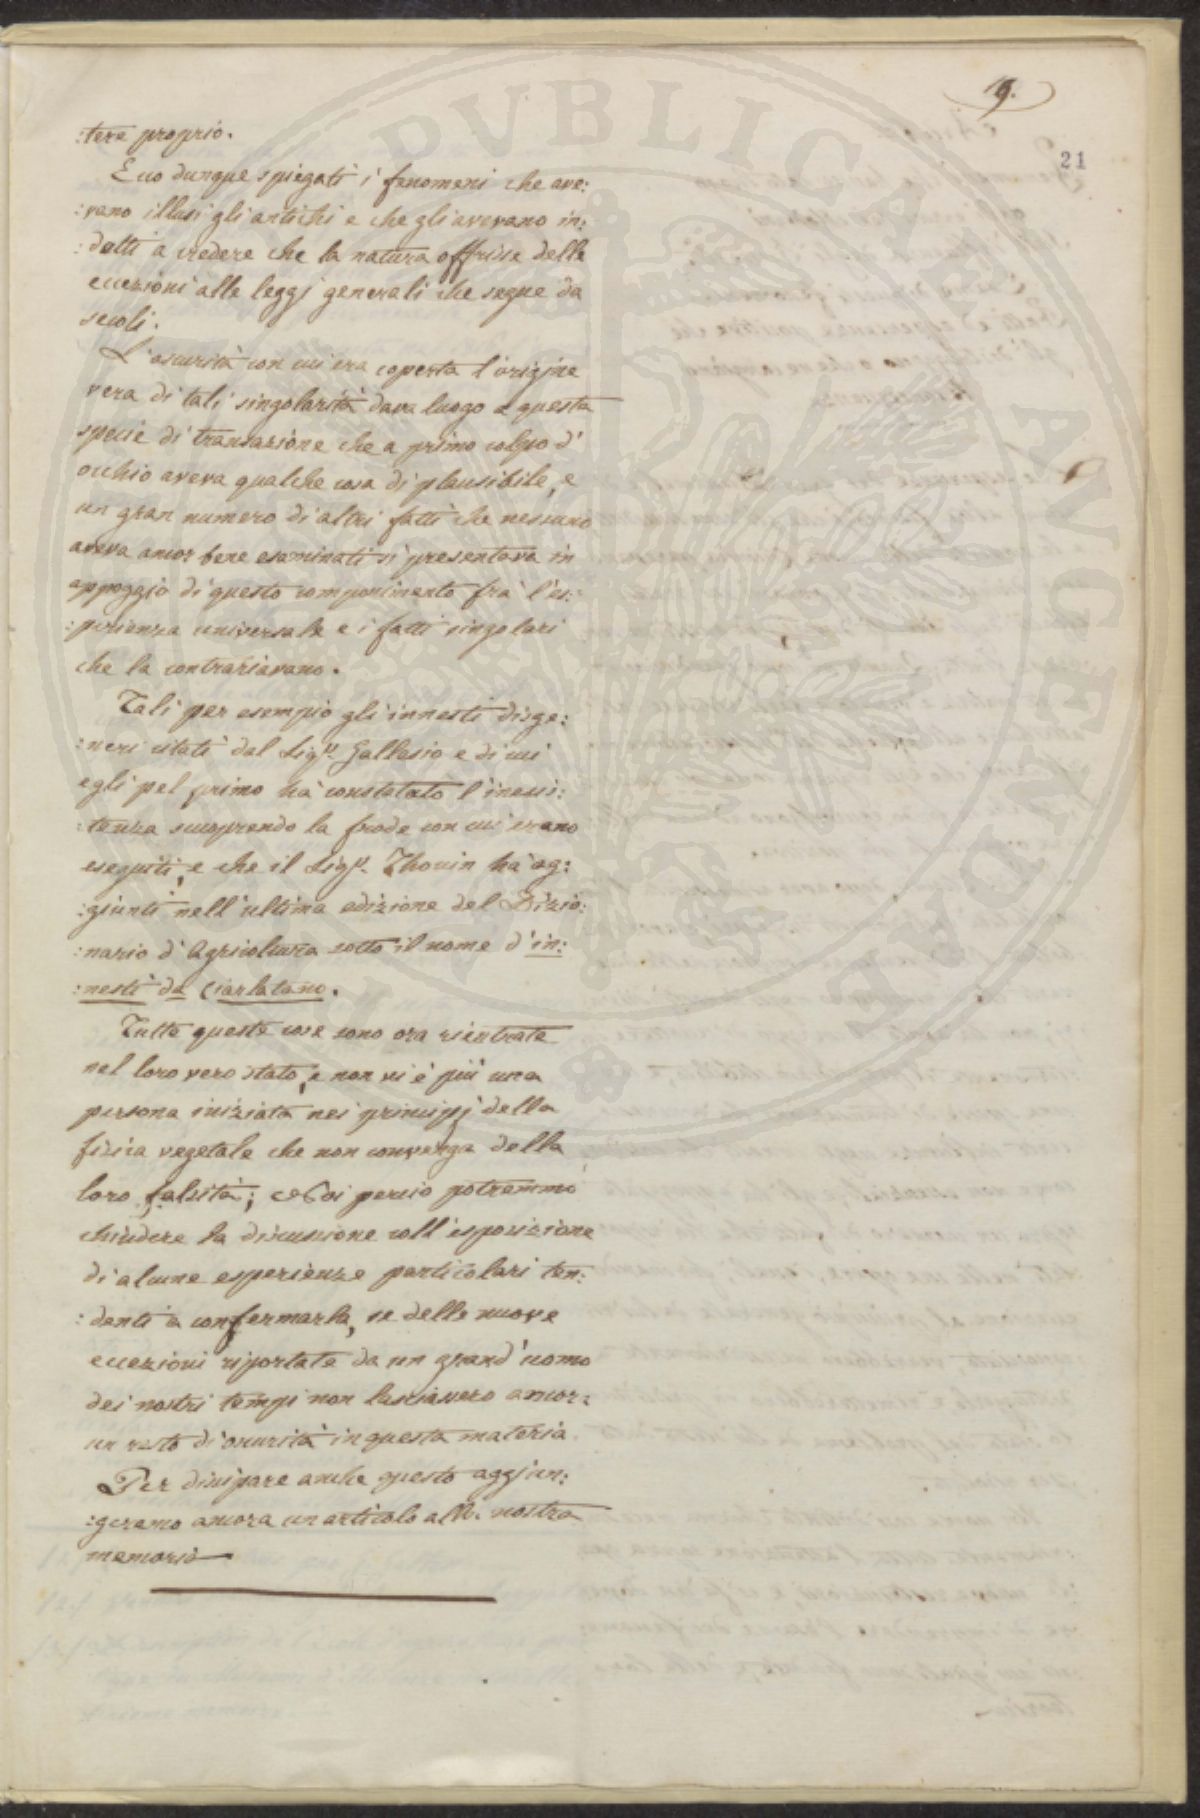 19.
21
:tere proprio.
Ecco dunque spiegati i fenomeni che ave:
:vano illusi gli antichi e che gli avevano in:
:dotti a credere che la natura offrisse delle
eccezioni alle leggi generali che segue da
secoli.
L'oscurità con cui era coperta l'origine
vera di tali singolarità dava luogo a questa
specie di transazione che a primo colpo d'
occhio aveva qualche cosa di plausibile, e
un gran numero di altri fatti che nessuno
aveva ancor bene esaminati si presentava in
appoggio di questo componimento frà l'es:
:perienza universale e i fatti singolari
che la contrariavano.
Tali per esempio gli innesti disge:
:neri citati dal Sigr. Gallesio e di cui
egli pel primo hà constatato l'inesi:
:tenza scuoprendo la frode con cui erano
eseguiti, e che il Sigr. Thouin hà ag:
:giunti nell'ultima edizione del Dizio:
:nario d'Agricoltura sotto il nome d'in:
:nesti da Ciarlatano.
Tutte queste cose sono ora rientrate
nel loro vero stato, e non vi è più una
persona iniziata nei principj della
fisica vegetale che non convenga della
loro falsità; e Noi perciò potremmo
chiudere la discussione coll'esposizione
di alcune esperienze particolari ten:
:denti a confermarla, se delle nuove
eccezioni riportate da un grand'uomo
dei nostri tempi non lasciassero ancor:
un resto di oscurità in questa materia.
Per dissipare anche questo aggiun:
:geremo ancora un articolo alla nostra
memoria